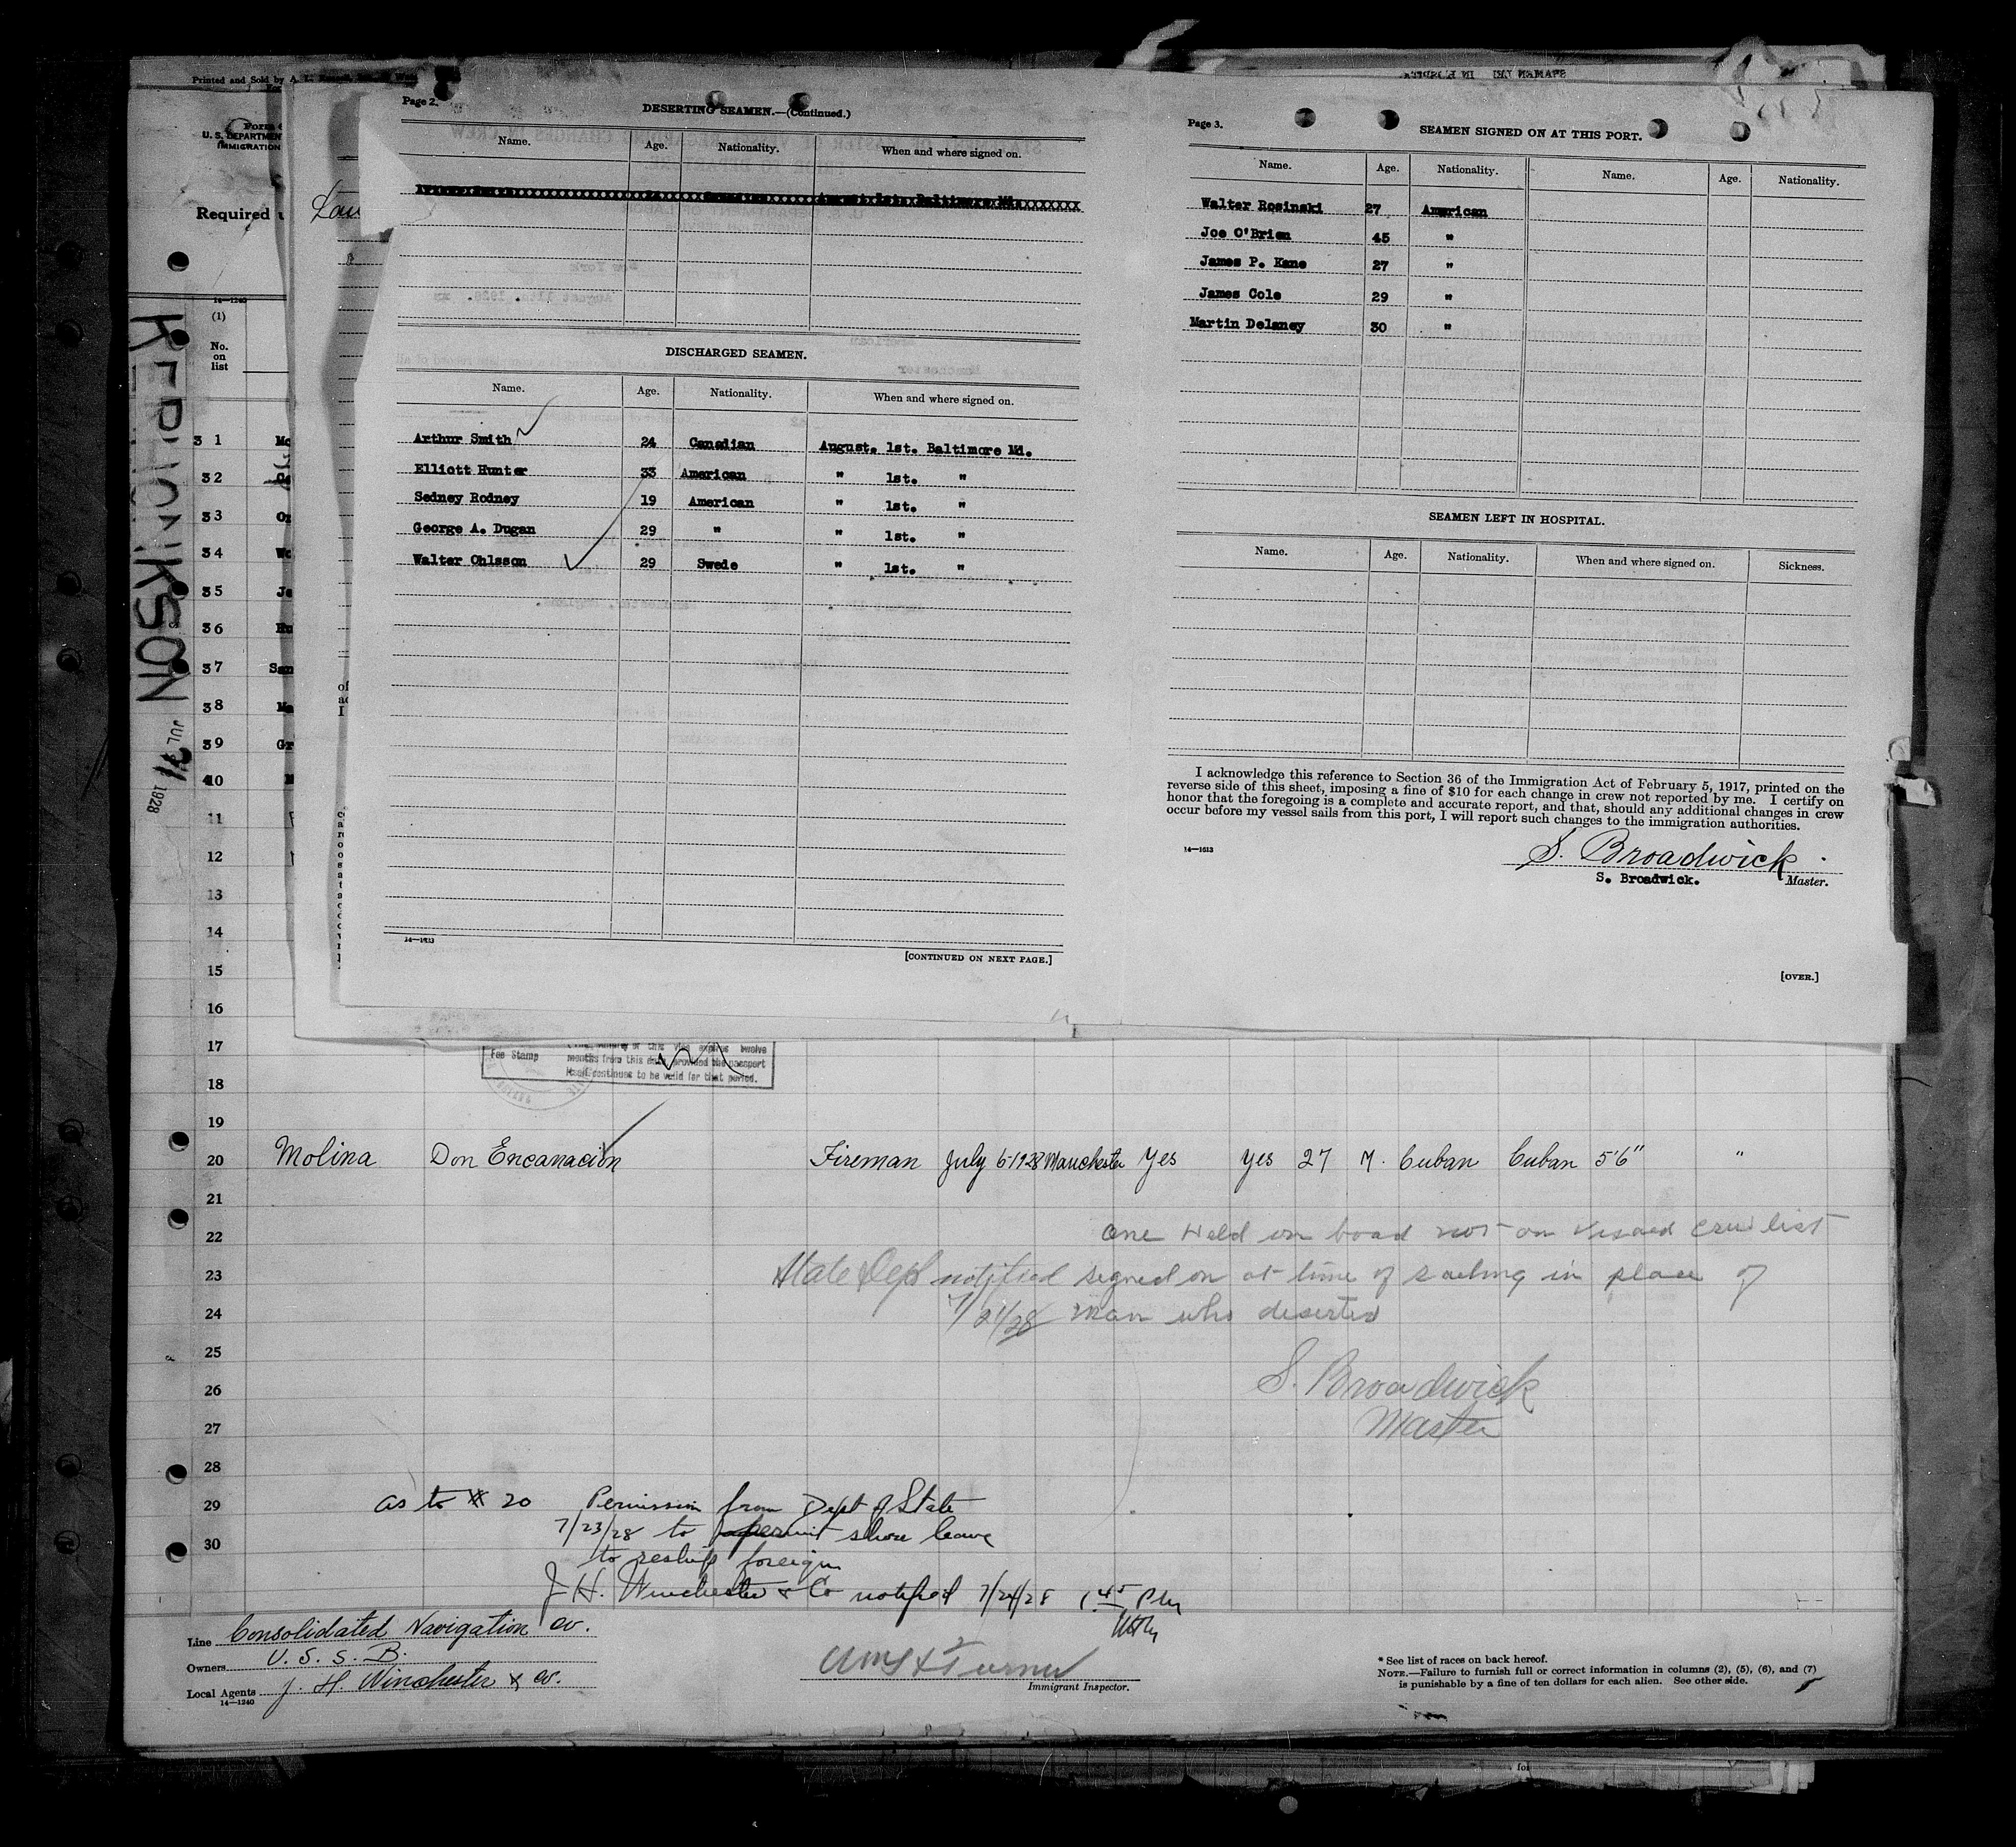 Printed and Sold by
U. S. DEPARTMENT
IMMIGRATION
Required
14—1240
(1)
No.
on
list
HENRICKSON
JUL 31 1928
3 1
3 2
3 3
3 4
3 5
3 6
3 7
3 8
3 9
40
11
12
13
14
15
16
17
18
19
20
21
22
23
24
25
26
27
28
29
30
Page 2.
DESERTING SEAMEN.—(Continued.)
Name. Age. Nationality. When and where signed on.
August 1st. Baltimore Md.
DISCHARGED SEAMEN.
Name. Age. Nationality. When and where signed on.
Arthur Smith 24 Canadian August. 1st. Baltimore Md.
Elliott Hunter 33 American " 1st. "
Sedney Rodney 19 American " 1st. "
George A. Dugan 29 " " 1st. "
Walter Ohlsson 29 Swede " 1st. "
14—1613
[CONTINUED ON NEXT PAGE.]
Page 3.
SEAMEN SIGNED ON AT THIS PORT.
Name. Age. Nationality. Name. Age. Nationality.
Walter Rosinski 27 American
Joe O'Brien 45 "
James P. Kane 27 "
James Cole 29 "
Martin Delaney 30 "
SEAMEN LEFT IN HOSPITAL.
Name. Age. Nationality. When and where signed on. Sickness.
I acknowledge this reference to Section 36 of the Immigration Act of February 5, 1917, printed on the
reverse side of this sheet, imposing a fine of $10 for each change in crew not reported by me. I certify on
honor that the foregoing is a complete and accurate report, and that, should any additional changes in crew
occur before my vessel sails from this port, I will report such changes to the immigration authorities.
14—1613
S. Broadwick
S. Broadwick. Master.
[OVER.]
Fee Stamp
of this visa expires twelve
months from this date provided the passport
itself continues to be valid for that period.
Molina Don Encanación Fireman July 6-1928 Manchester Yes Yes 27 M. Cuban Cuban 5'6" "
One Held on board not on visaed crew list
State Dept notified signed on at time of sailing in place of
7/21/28 man who deserted
S. Broadwick
Master
as to # 20 Permission from Dept of State
7/23/28 to permit shore leave
to reship foreign
J H. Winchester & Co notified 7/24/28 1.45 PM
Line Consolidated Navigation Co.
Owners U. S. S. B.
Local Agents J. H. Winchester & Co.
14—1240
Turner
Immigrant Inspector.
* See list of races on back hereof.
NOTE.—Failure to furnish full or correct information in columns (2), (5), (6), and (7)
is punishable by a fine of ten dollars for each alien. See other side.